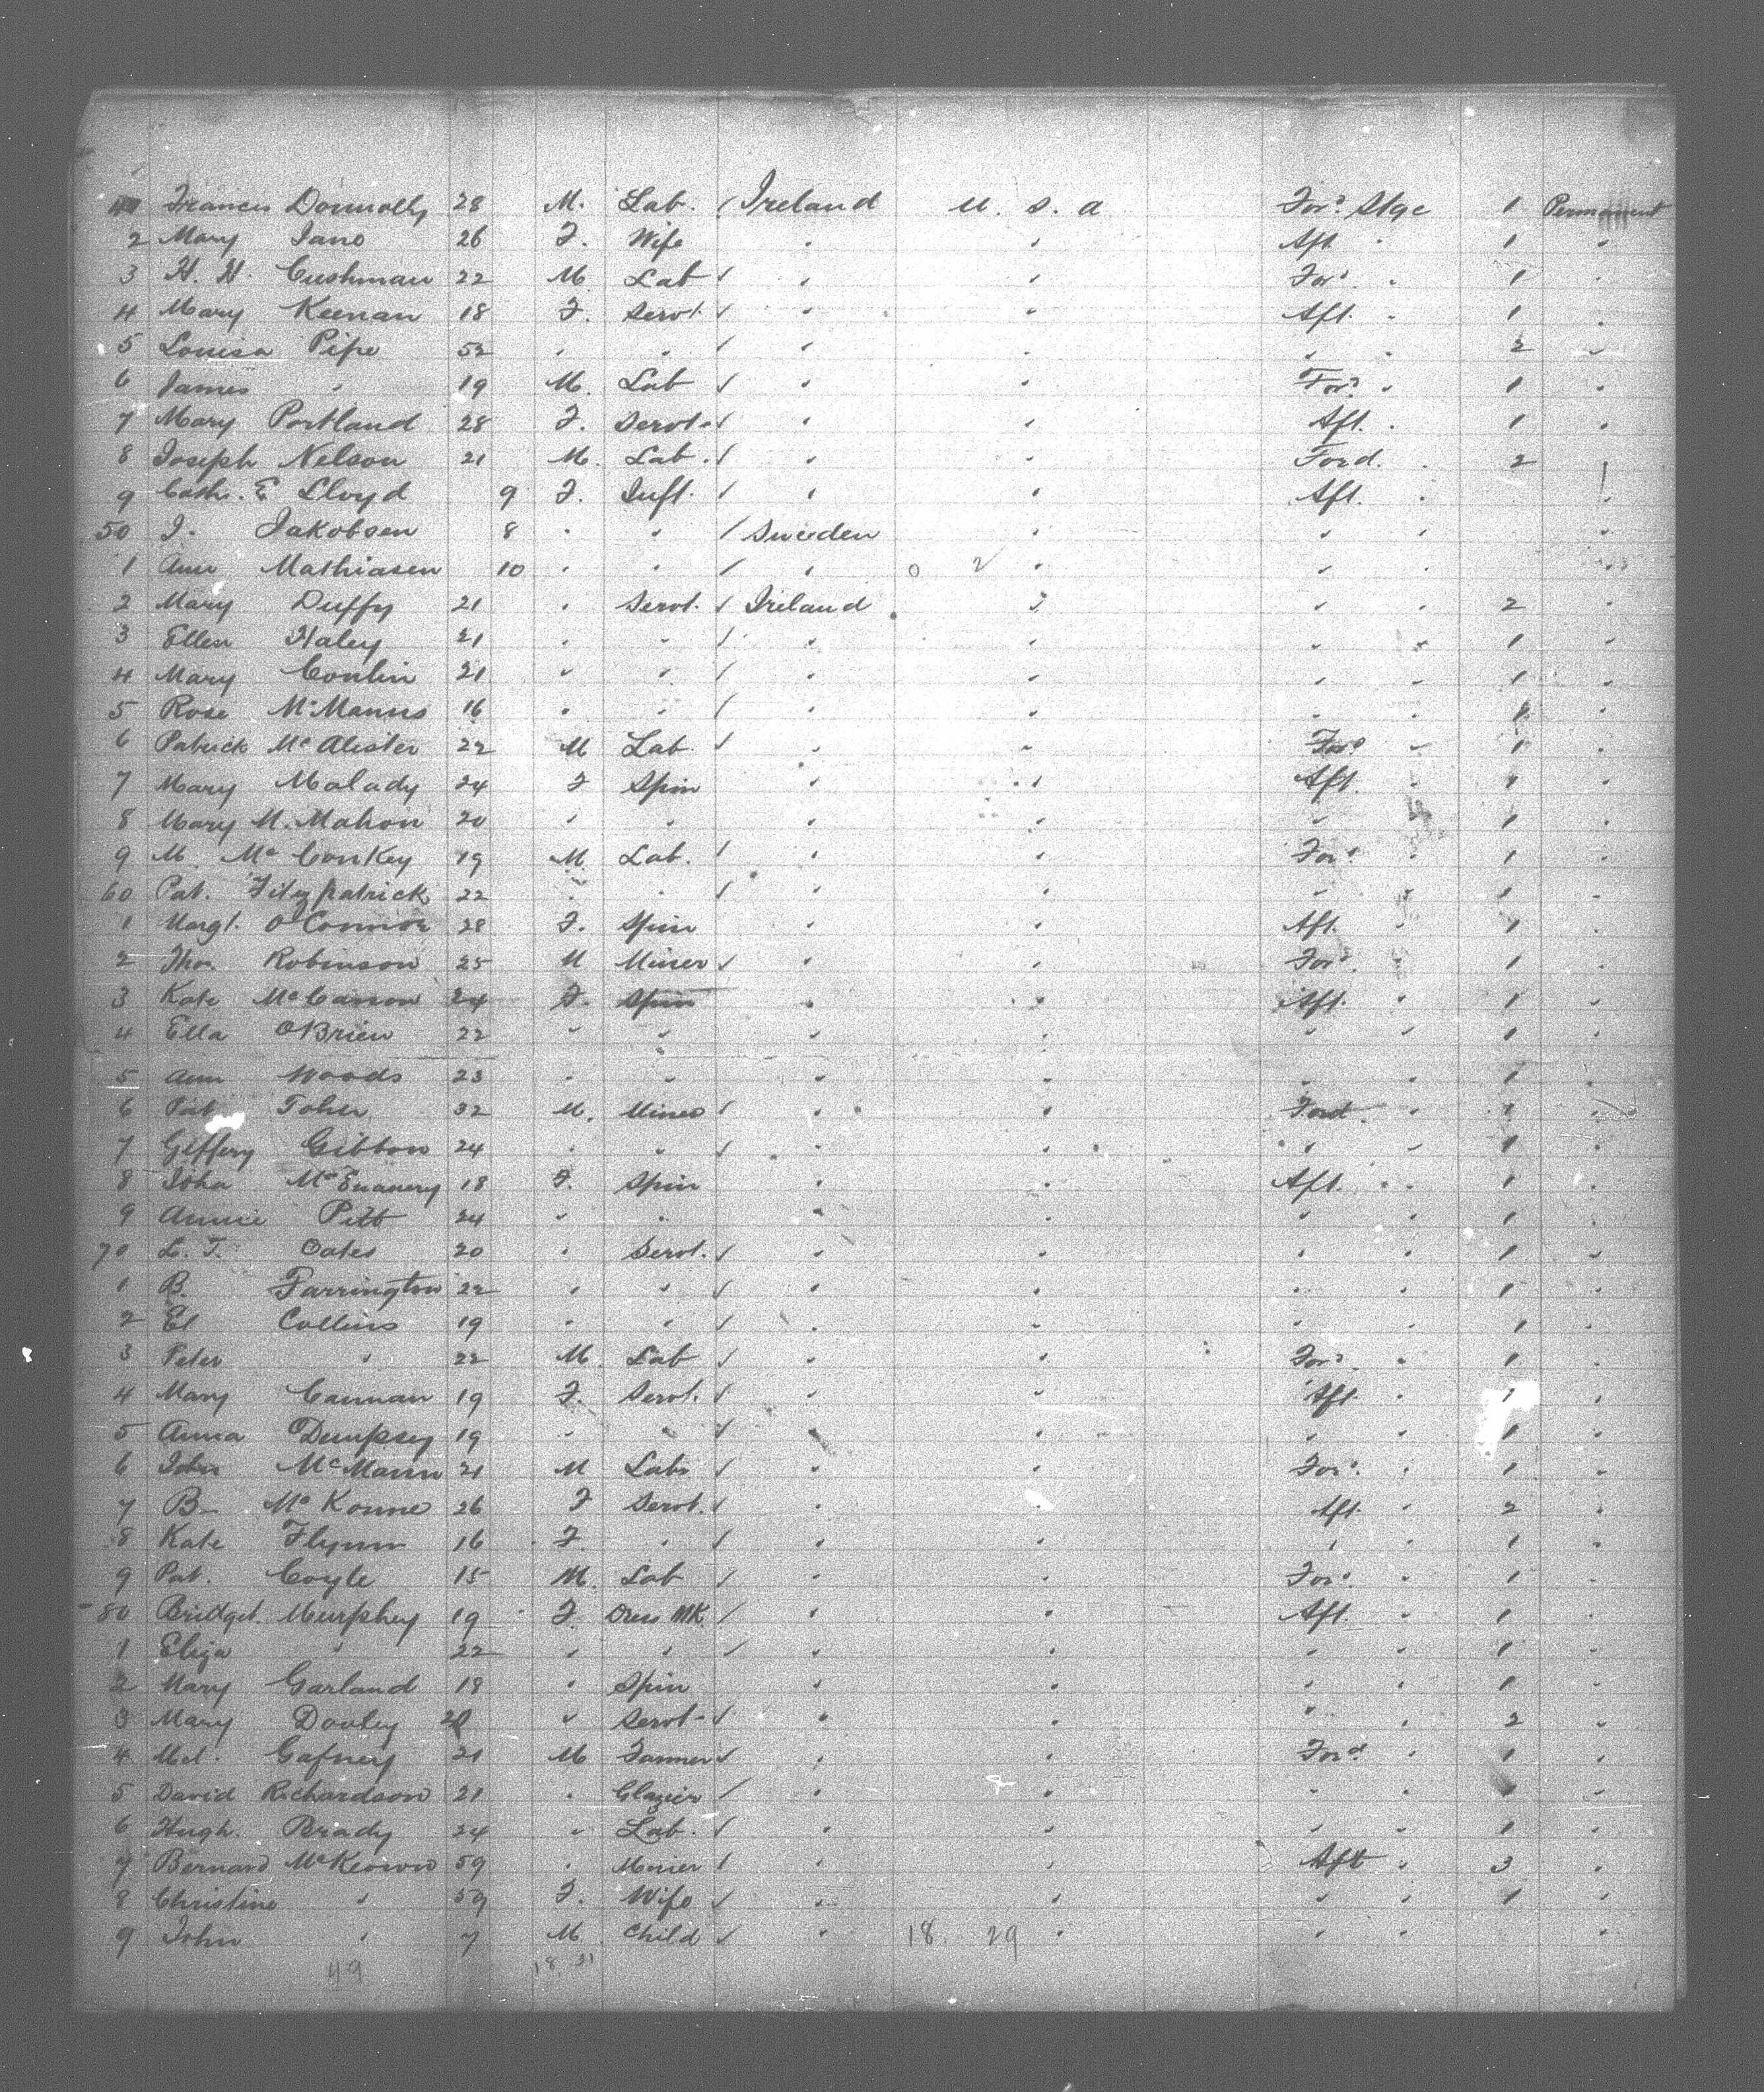 Francis Donnolly 28 M. Lab. / Ireland U. S. A For.d Stge 1 Permanent
2 Mary Jane 26 F. Wife " " Aft " 1 "
3 H. H. Cushman 22 M. Lab / " " For.d " 1 "
4 Mary Keenan 18 F. Servt. / " " Aft. " 1 "
5 Louisa Pipe 52 " " / " " " " 2 "
6 James " 19 M. Lab / " " For.d " 1 "
7 Mary Portland 28 F. Servt. / " " Aft. " 1 "
8 Joseph Nelson 21 M. Lab. / " " Ford. " 2 "
9 Cath. E Lloyd 9 F. Inft. / " " Aft. " "
50 J. Jakobsen 8 " " / Sweden " " " "
1 Ann Mathiasen 10 " " / " 0 2 " " "
2 Mary Duffy 21 " Servt. / Ireland " " " 2 "
3 Ellen Haley 21 " " / " " " " 1 "
4 Mary Conlin 21 " " / " " " " 1 "
5 Rose McManus 16 " " / " " " " 1 "
6 Patrick McAlister 22 M Lab. / " " For.d " 1 "
7 Mary Malady 24 F Spin " " Aft. " 1 "
8 Mary M. Mahon 20 " " " " " " 1 "
9 M. McConkey 19 M Lab. / " " For.d " 1 "
60 Pat. Fitzpatrick 22 " " / " " " " 1 "
1 Margt. O'Connor 28 F. Spin " " Aft. " 1 "
2 Thos. Robinson 25 M Miner / " " For.d " 1 "
3 Kate McCanon 24 F. Spin " " Aft. " 1 "
4 Ella O'Brien 22 " " " " " " 1 "
5 Ann Woods 23 " " " " " " 1 "
6 Pat Toher 32 M. Miner / " " Ford " 1 "
7 Geffery Gibbon 24 " " / " " " " 1 "
8 Isba McEnanery 18 F. Spin " " Aft. " 1 "
9 Annie Pitt 24 " " " " " " 1 "
70 L. T. Oates 20 " Servt. / " " " " 1 "
1 B. Farrington 22 " " / " " " " 1 "
2 El Collins 19 " " / " " " " 1 "
3 Peter " 22 M. Lab / " " For.d " 1 "
4 Mary Cannan 19 F. Servt. / " " Aft " 1 "
5 Anna Dempsey 19 " " / " " " " 1 "
6 John McMann 21 M Labr / " " For.d " 1 "
7 B. McKonne 26 F Servt. / " " Aft. " 2 "
8 Kate Flynn 16 F. " / " " " " 1 "
9 Pat. Coyle 15 M. Lab / " " For.d " 1 "
80 Bridget Murphey 19 F. Dress MK. / " " Aft. " 1 "
1 Eliza " 22 " " / " " " " 1 "
2 Mary Garland 18 " Spin " " " " 1 "
3 Mary Dooley " Servt. / " " " " 2 "
4 Mcl. Gafney 21 M Farmer / " " For.d " 1 "
5 David Richardson 21 " Glazier / " " " " 1 "
6 Hugh. Brady 24 " Lab. / " " " " 1 "
7 Bernard McKeown 59 " Minier / " " Aft " 3 "
8 Christine " 59 F. Wife / " " " " 1 "
9 John " 7 M. Child / " 18. 29 " " " "
49 18 31